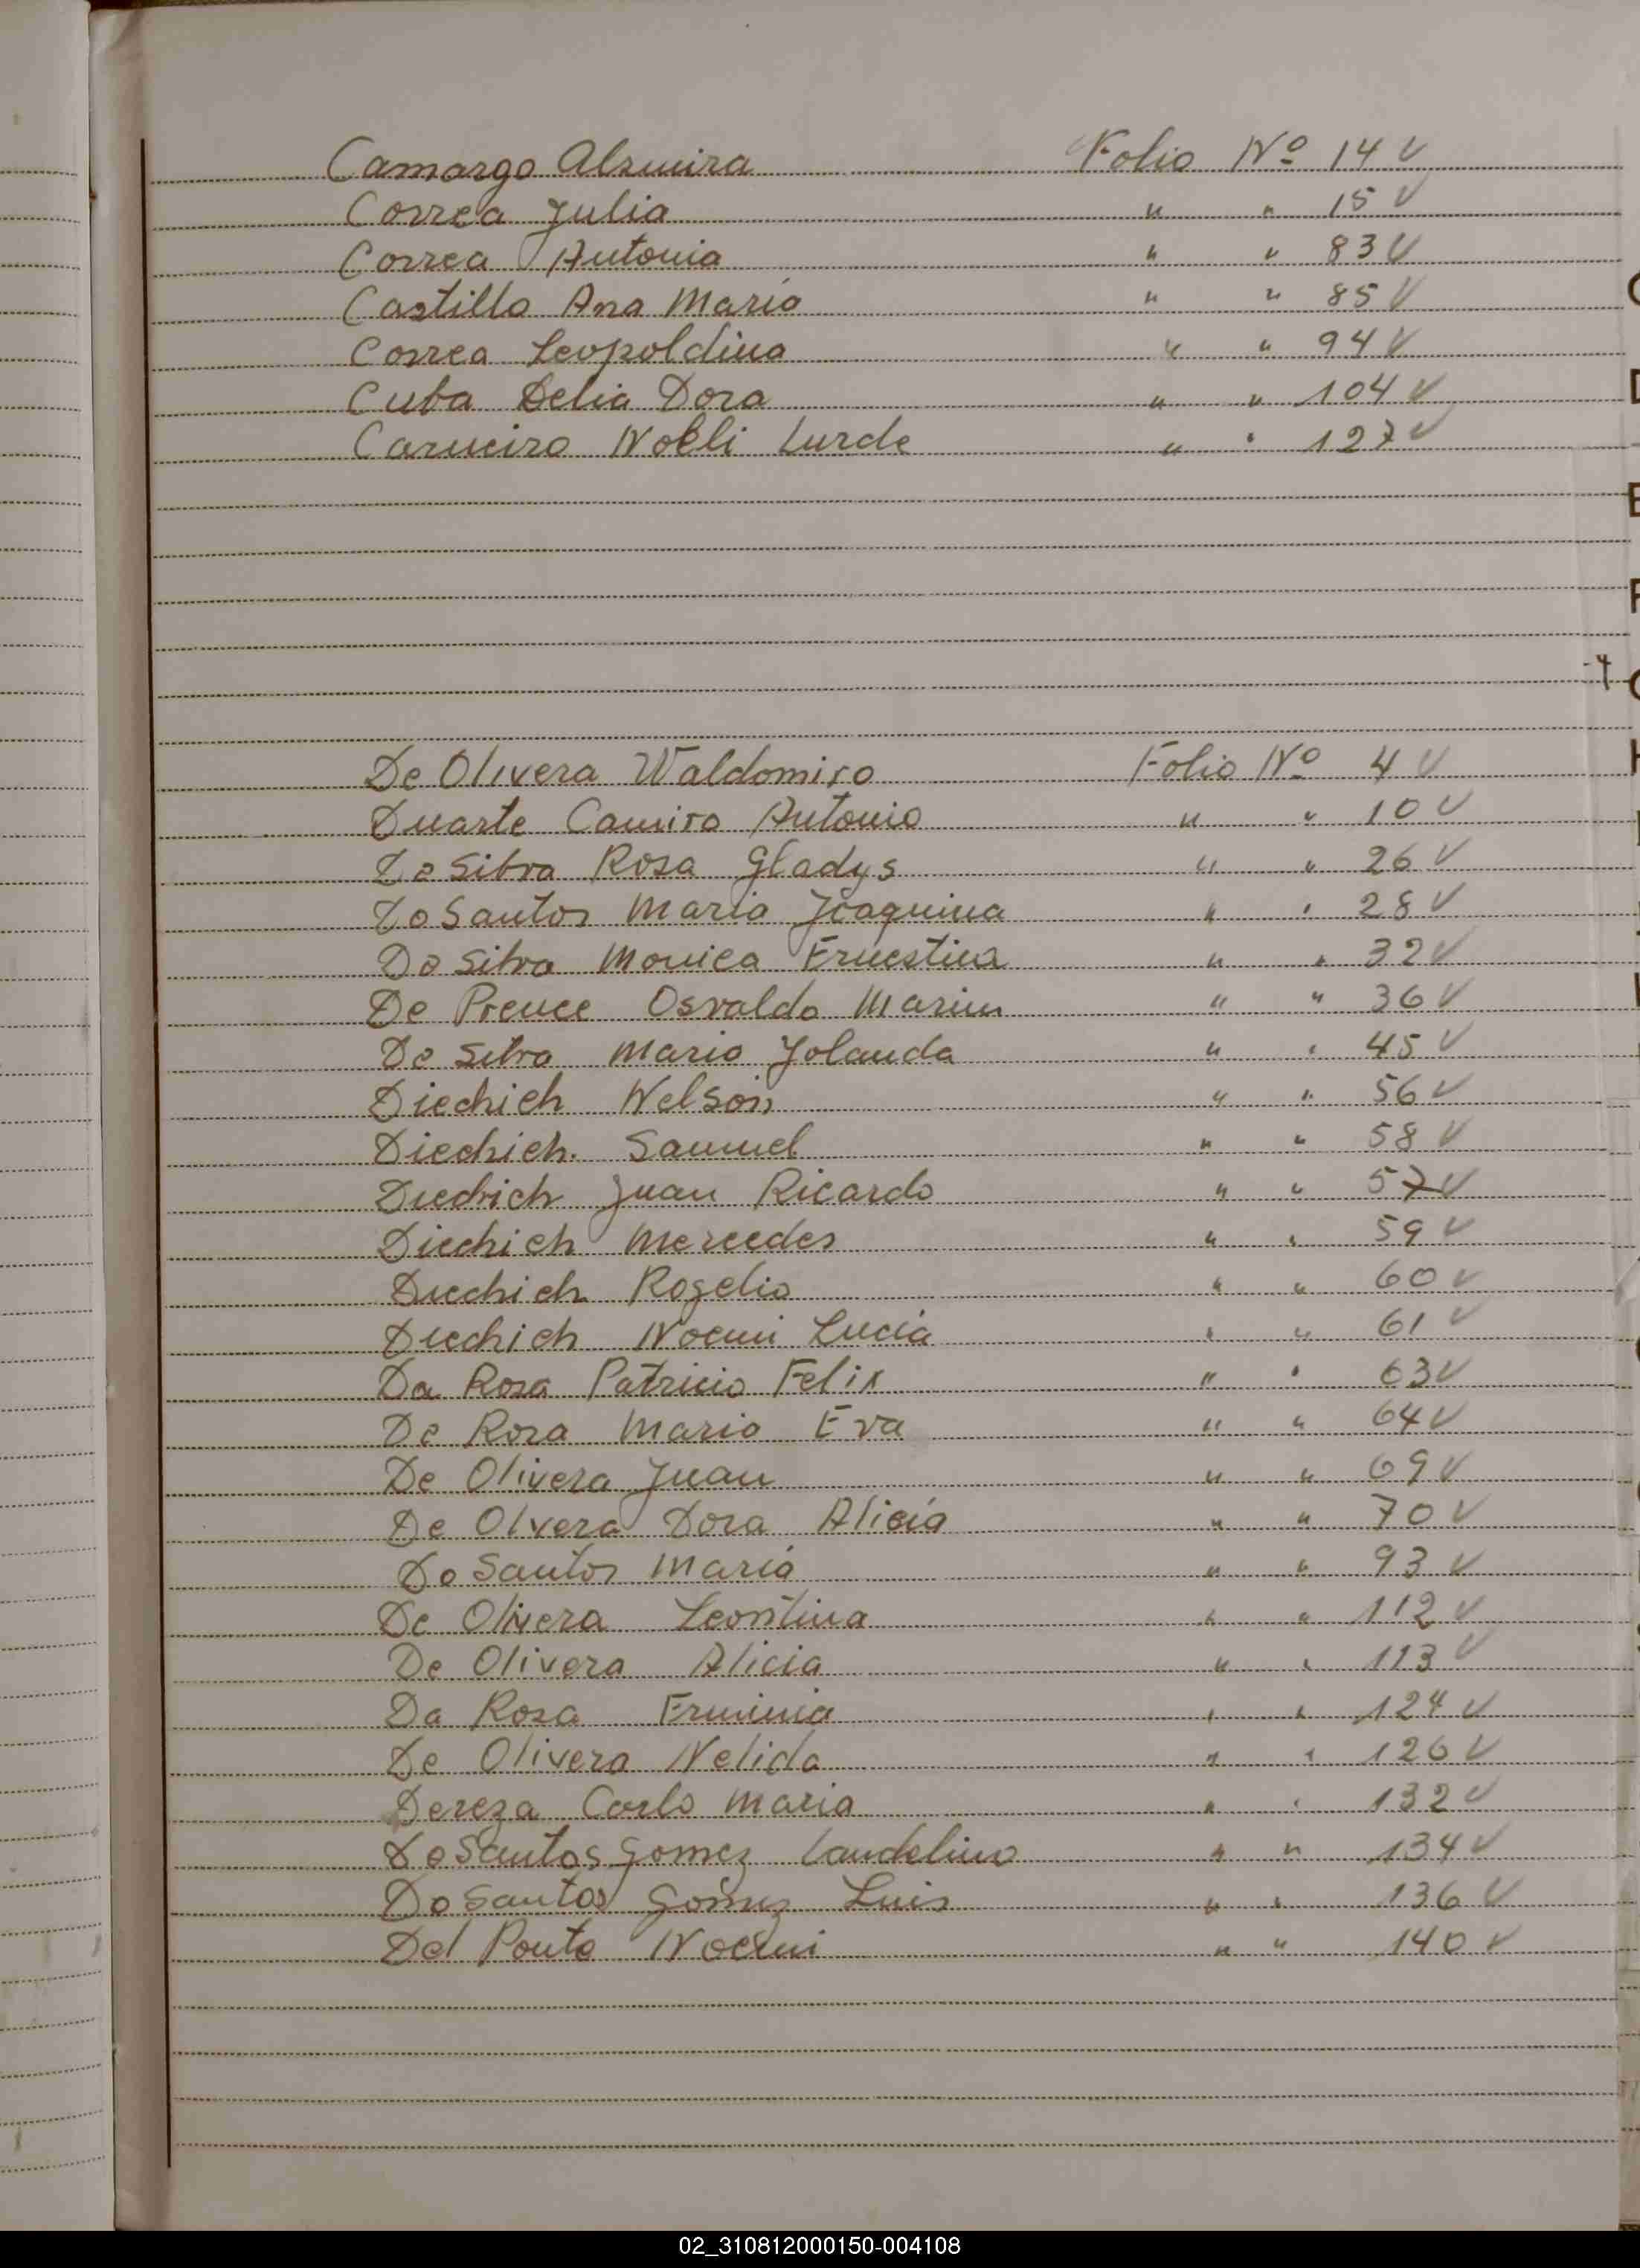 Camargo Alzmira Folio Nº 14 V
Correa Julia " " 15 V
Correa Antonia " " 83 V
Castillo Ana Maria " " 85 V
Correa Leopoldina " " 94 V
Cuba Delia Dora " " 104 V
Carneiro Noeli Lurde " " 127 V
De Olivera Waldomiro Folio Nº 4 V
Duarte Camiro Antonio " " 10 V
Da Silva Rosa Gladys " " 26 V
Do Santos Maria Joaquina " " 28 V
Da Silva Monica Ernestina " " 32 V
De Prence Osvaldo Marin " " 36 V
Da Silva Maria Yolanda " " 45 V
Diedrich Nelson " " 56 V
Diedrich. Samuel " " 58 V
Diedrich Juan Ricardo " " 57 V
Diedrich Mercedes " " 59 V
Diedrich Rogelio " " 60 V
Diedrich Noemi Lucia " " 61 V
Da Rosa Patricio Felix " " 63 V
Da Rosa Maria Eva " " 64 V
De Olivera Juan " " 69 V
De Olvera Dora Alicia " " 70 V
Do Santos Maria " " 93 V
De Olivera Leontina " " 112 V
De Olivera Alicia " " 113 V
Da Rosa Erminia " " 124 V
De Olivera Nelida " " 126 V
Dereza Carlo Maria " " 132 V
Do Santos Gomez Laudelino " " 134 V
Do Santos Gomez Luis " " 136 V
Del Ponte Noemi " " 140 V
02_310812000150-004108